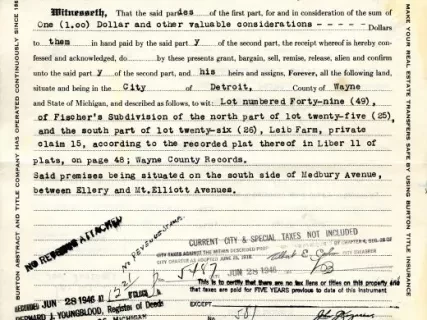 Witnesseth, That the said parties of the first part, for and in consideration of the sum of
One (1.00) Dollar and other valuable considerations - - - - - - - Dollars
to them in hand paid by the said part y of the second part, the receipt whereof is hereby con-
fessed and acknowledged, do by these presents grant, bargain, sell, remise, release, alien and confirm
unto the said part y of the second part, and his heirs and assigns, Forever, all the following land,
situate and being in the City of Detroit, County of Wayne
and State of Michigan, and described as follows, to wit: Lot numbered Forty-nine (49),
of Fischer's Subdivision of the north part of lot twenty-five (25)
and the south part of lot twenty-six (26), Leib Farm, private
claim 15, according to the recorded plat thereof in Liber 11 of
plats, on page 48; Wayne County Records.
Said premises being situated on the south side of Medbury Avenue,
between Ellery and Mt.Elliott Avenues.
NO REVENUE ATTACHED
NO REVENUE STAMPS
CURRENT CITY & SPECIAL TAXES NOT INCLUDED
5487 JUN 28 1946
This is to certify that there are no tax liens or titles on this property and
that taxes are paid for FIVE YEARS previous to date of this instrument
EXCEPT
RECORDED JUN 28 1946 at
BERNARD J. YOUNGBLOOD, Register of Deeds
MICHIGAN
581
BURTON ABSTRACT AND TITLE COMPANY HAS OPERATED CONTINUOUSLY SINCE 186
MAKE YOUR REAL ESTATE TRANSFERS SAFE BY USING BURTON TITLE INSURANCE